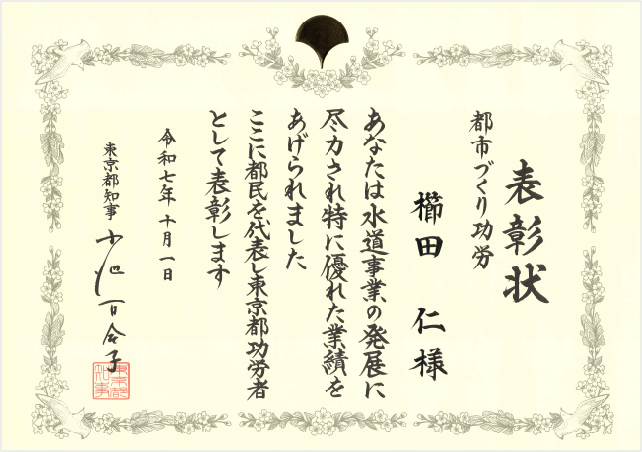 表彰状
都市づくり功労
櫛田 仁 様
あなたは水道事業の発展に
尽力され特に優れた業績を
あげられました
ここに都民を代表し東京都功労者
として表彰します
令和七年十月一日
東京都知事 小池百合子
東京都
知事